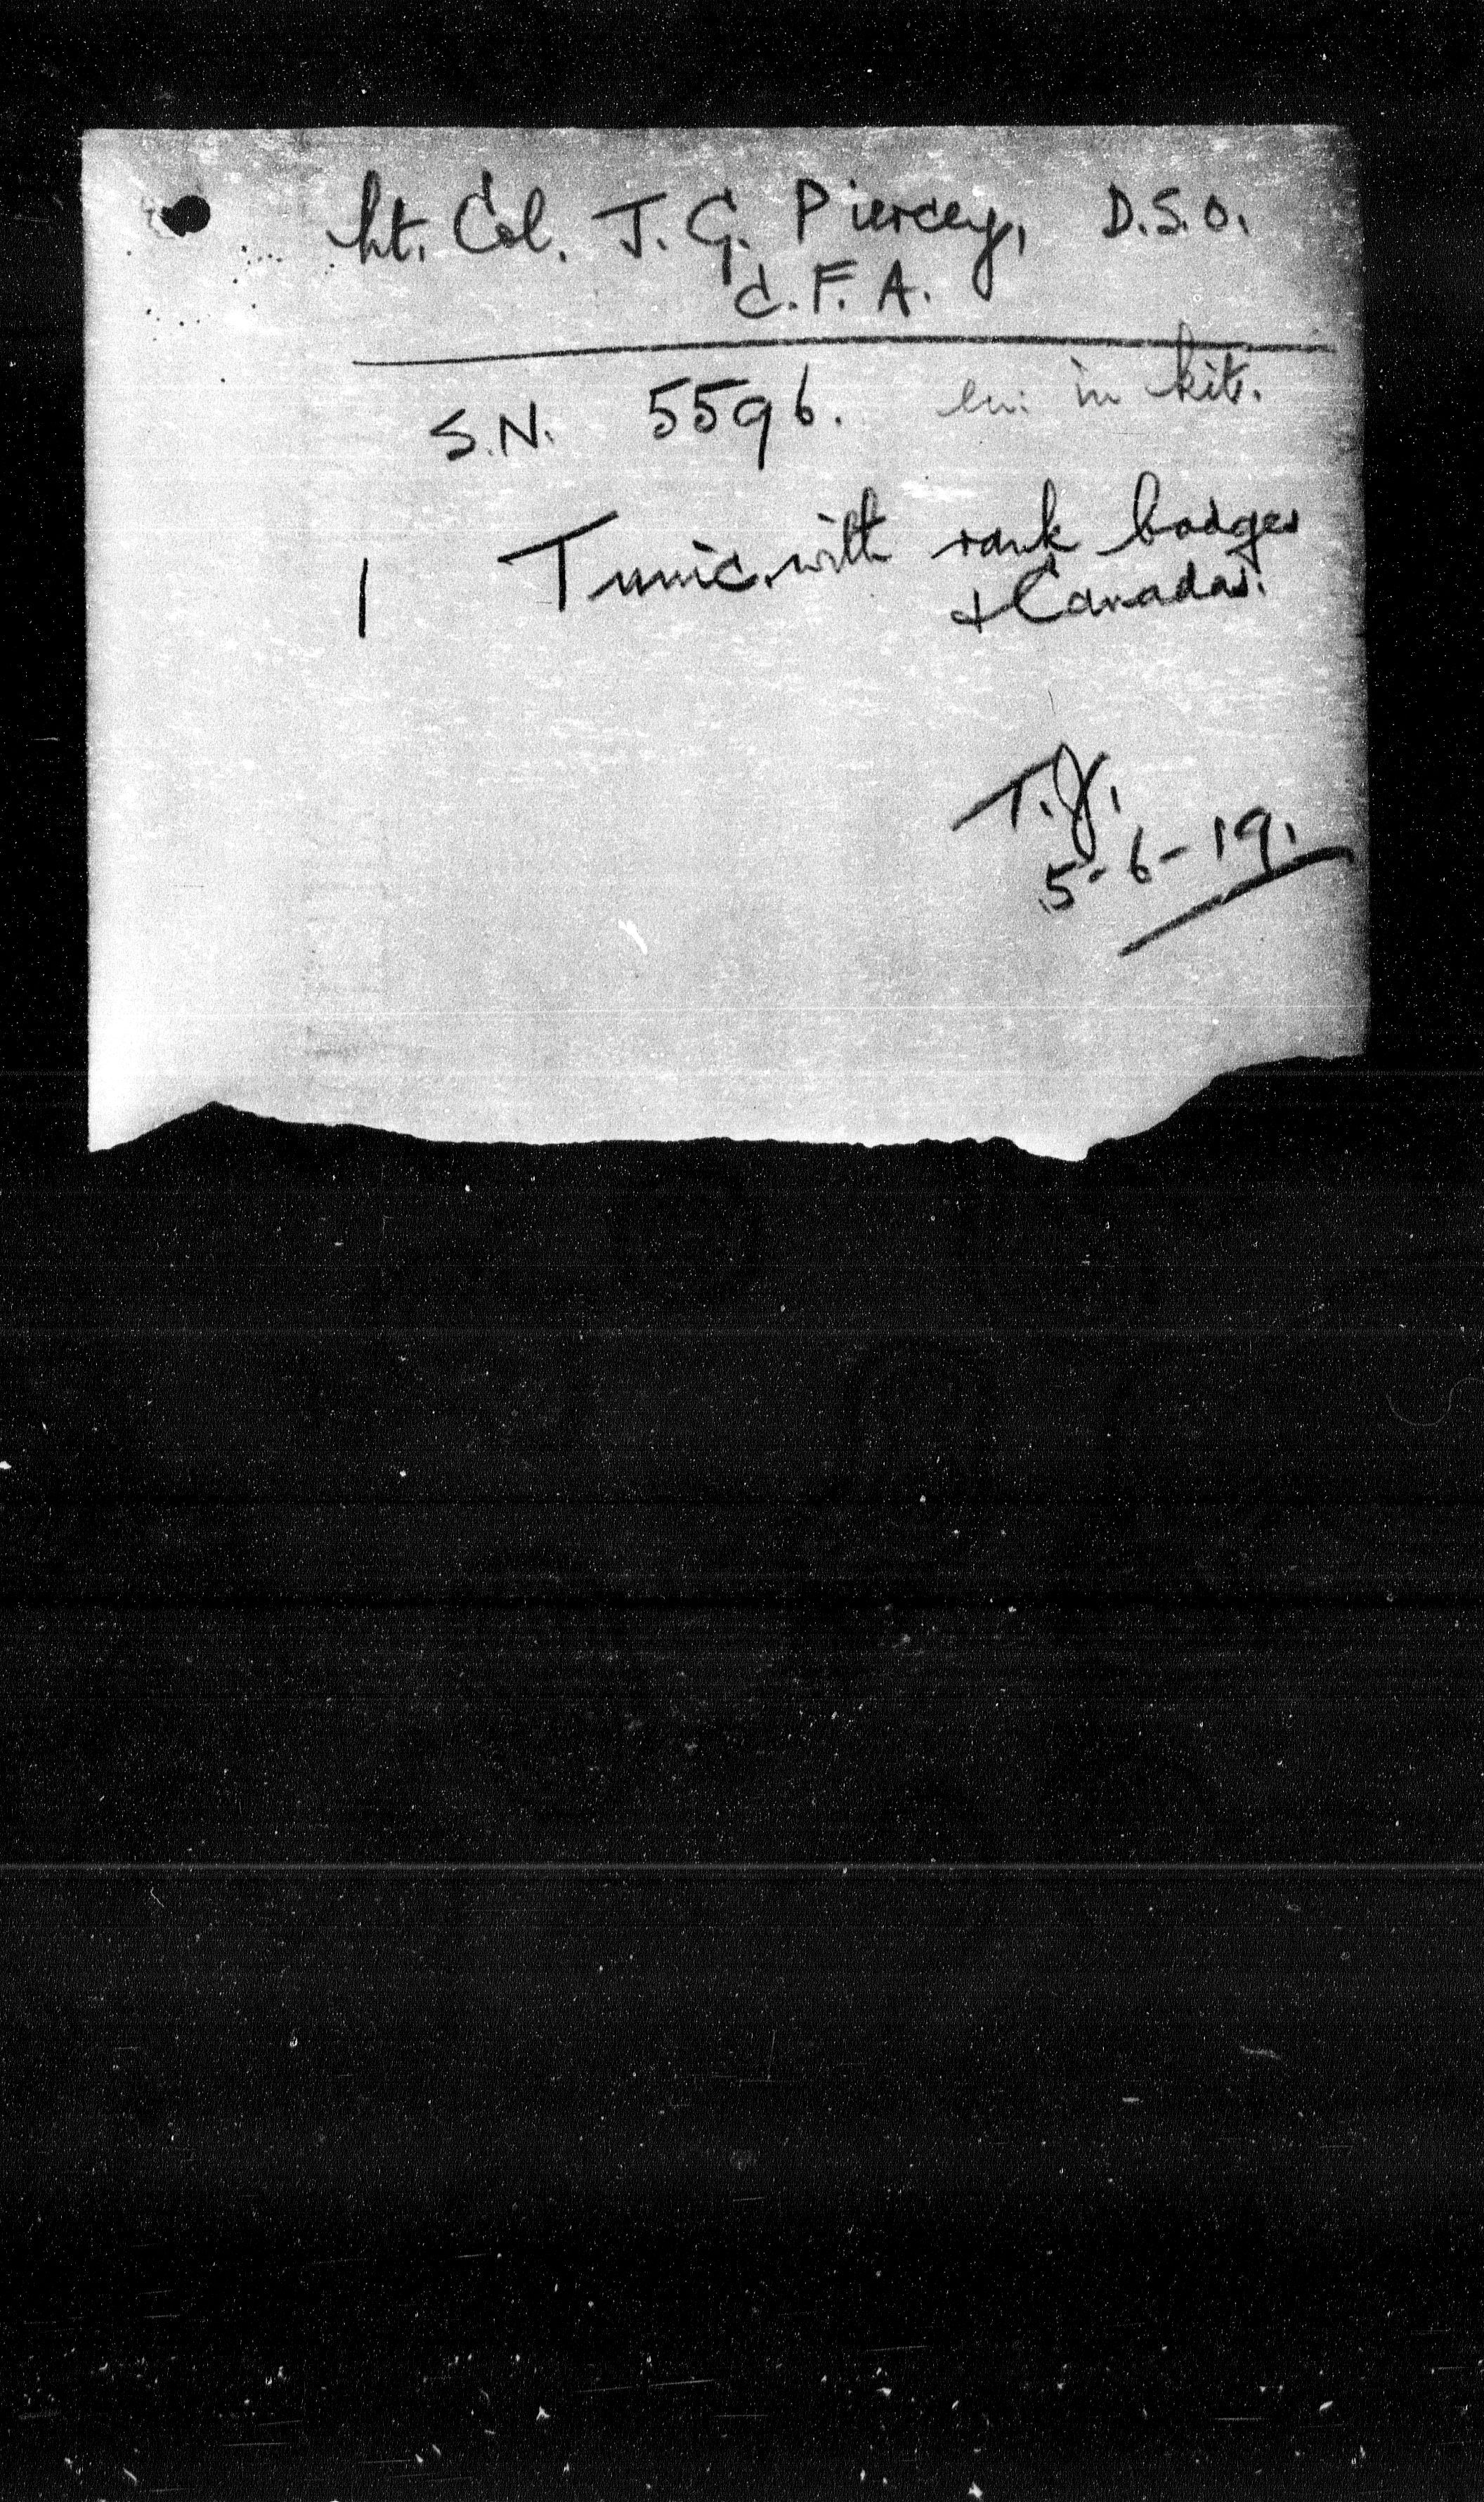 Lt. Col. J. G. Piercey, D.S.O.
C.F.A.
S.N. 5596. in kit.
1 Tunic with rank badges
+ Canadas.
T.J.
5-6-19.